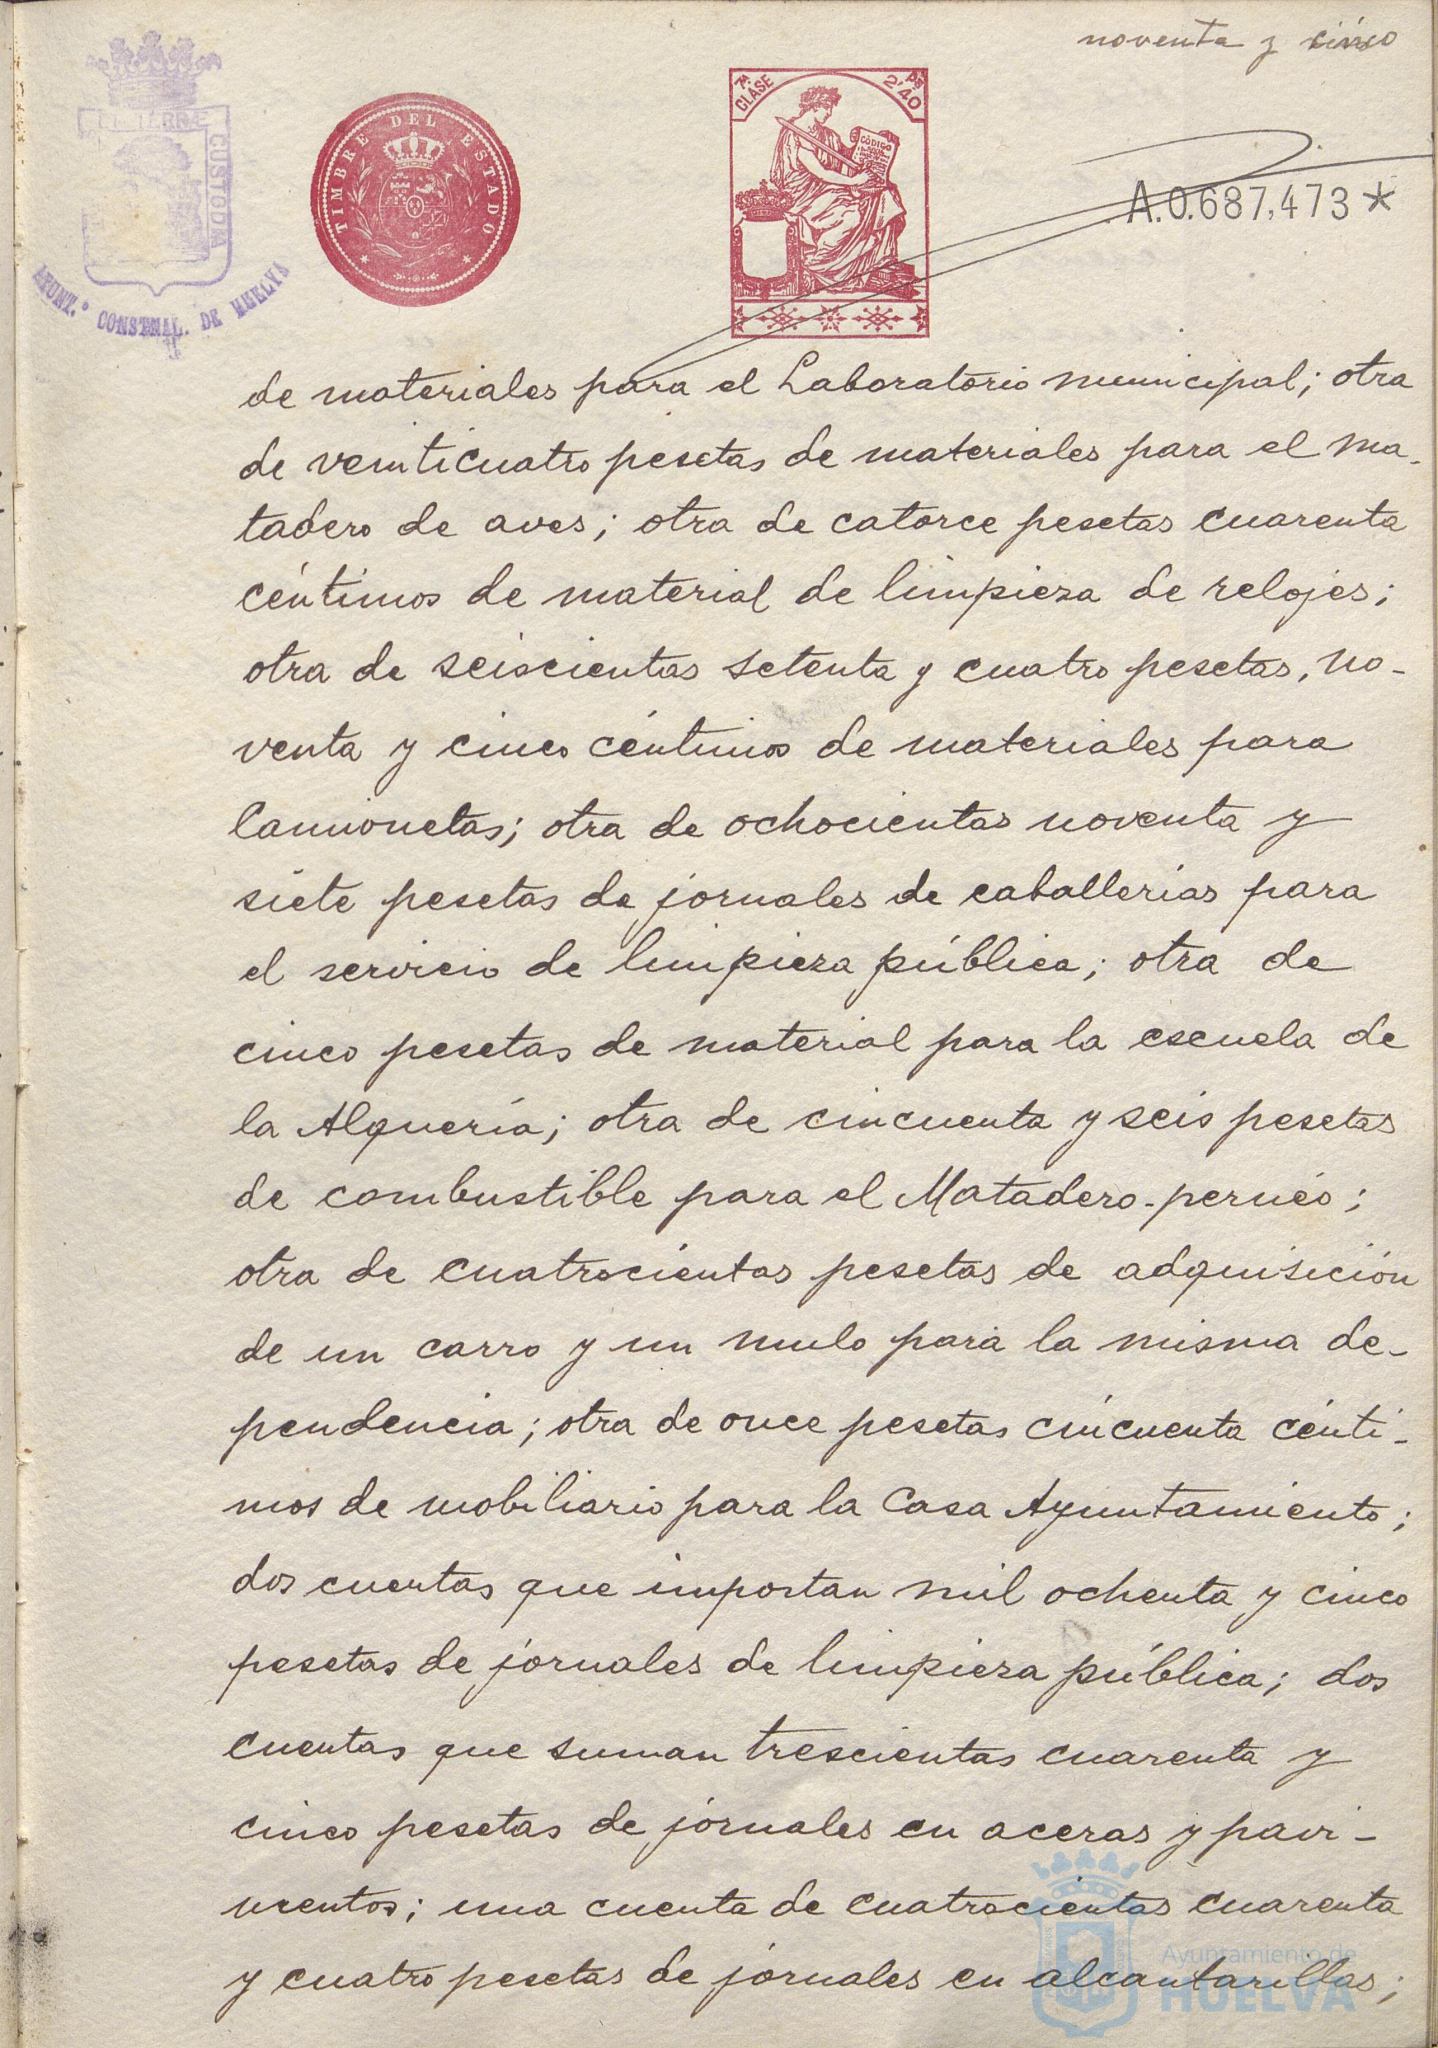 noventa y cinco
TIMBRE DEL ESTADO
7ª CLASE
2'40
CÓDIGO
A.0.687,473*
CUSTODIA
AYUNT.º CONSTNAL. DE HUELVA
de materiales para el Laboratorio municipal; otra
de veinticuatro pesetas de materiales para el ma-
tadero de aves; otra de catorce pesetas cuarenta
céntimos de material de limpieza de relojes;
otra de seiscientas setenta y cuatro pesetas, no-
venta y cinco céntimos de materiales para
camionetas; otra de ochocientas noventa y
siete pesetas de jornales de caballerias para
el servicio de limpieza pública; otra de
cinco pesetas de material para la escuela de
la Alquería; otra de cincuenta y seis pesetas
de combustible para el Matadero-perneo;
otra de cuatrocientas pesetas de adquisición
de un carro y un mulo para la misma de-
pendencia; otra de once pesetas cincuenta cénti-
mos de mobiliario para la Casa Ayuntamiento;
dos cuentas que importan mil ochenta y cinco
pesetas de jornales de limpieza pública; dos
cuentas que suman trescientas cuarenta y
cinco pesetas de jornales en aceras y pavi-
mentos; una cuenta de cuatrocientas cuarenta
y cuatro pesetas de jornales en alcantarillas;
Ayuntamiento de
HUELVA